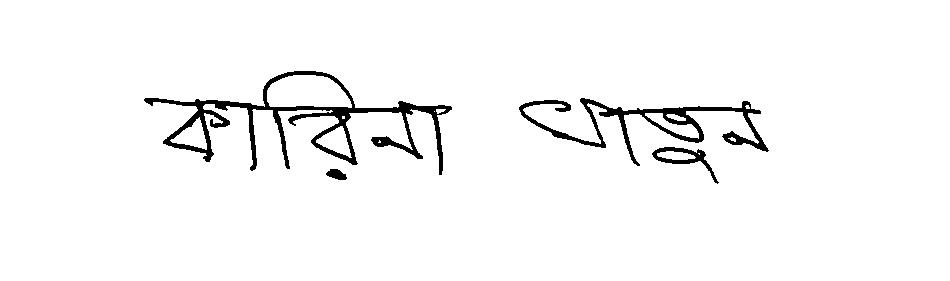 কারিনা খাতুন